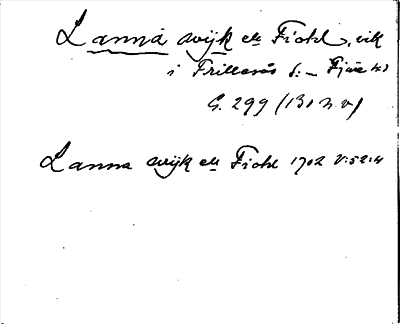 Lanna wijk ell Fiohl, vik
i Frillesås s:n Fjäre hd
G. 299 (131 n.v)
Lanna wijk ell Fiohl 1702 V:52:4